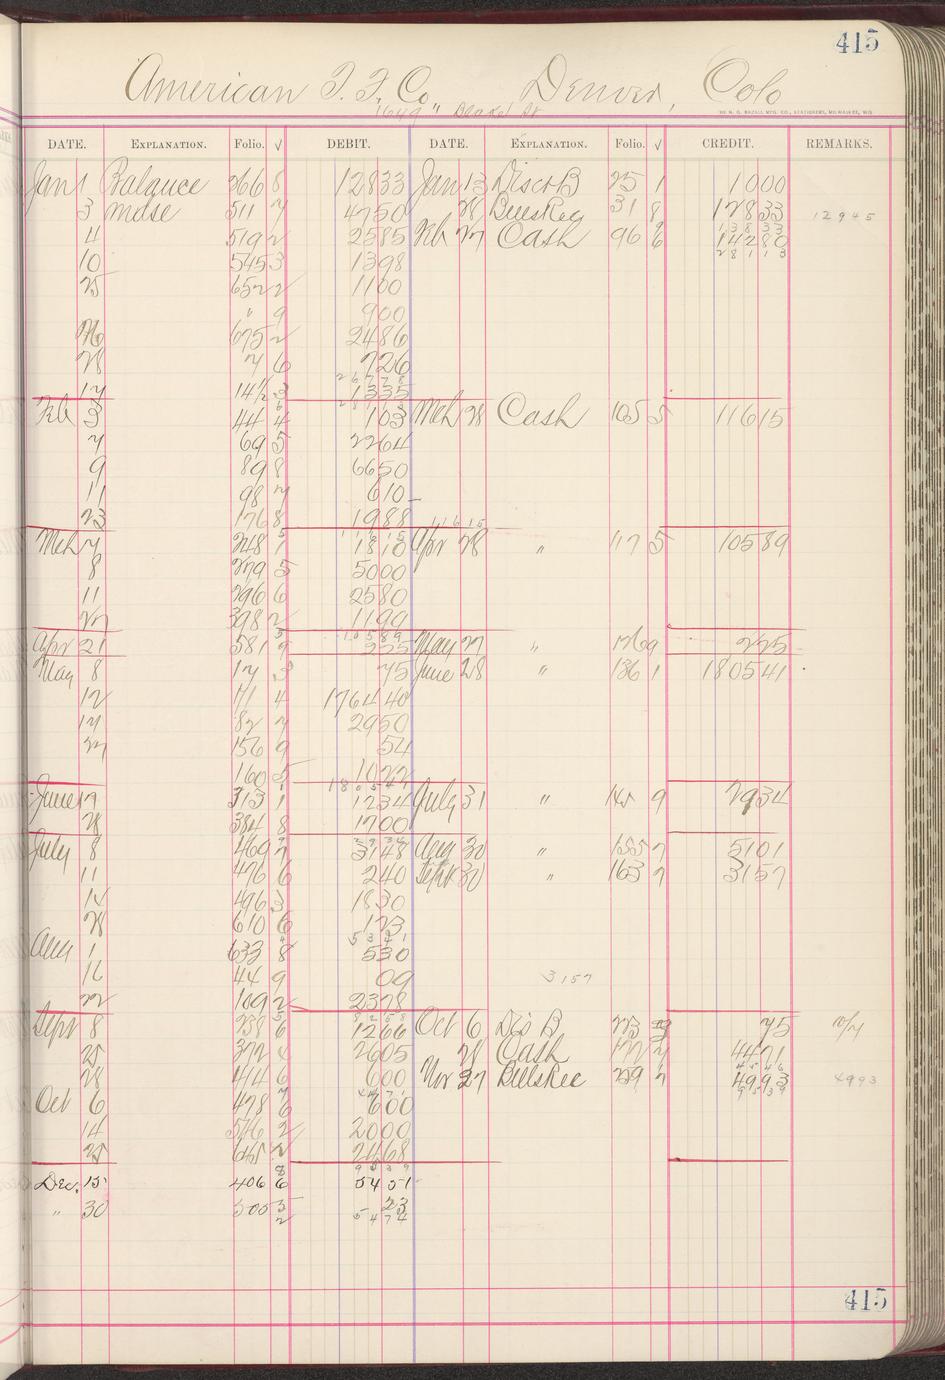 415
American T. F. Co Denver, Colo
1649 " Blake St
DATE. EXPLANATION. FOLIO. √ DEBIT. DATE. EXPLANATION. FOLIO. √ CREDIT. REMARKS.
Jan 1 Balance 266 8 12833 Jan 13 Disct B 25 1 1000
3 mdse 511 7 4750 28 Bills Rec 31 8 12833 12945
13833
4 519 2 2585 Feb 27 Cash 96 6 14280
28113
10 545 3 1398
25 652 2 1100
" 9 900
26 675 2 2486
28 7 6 726
26778
17 14½ 3 1335
Feb 3 44 4 103 Mch 28 Cash 105 5 11615
7 69 5 2264
9 89 8 6650
11 98 7 610
23 176 8 1988
11615
Mch 7 248 1 1810 Apr 28 " 117 5 10589
8 279 5 5000
11 296 6 2580
22 398 2 1199
10589
Apr 21 581 9 225 May 27 " 126 9 225
May 8 17 3 75 June 28 " 136 1 180541
12 111 4 176440
17 82 7 2950
27 156 9 54
160 5 1022
180541
June 17 313 1 1234 July 31 " 145 9 2934
28 384 8 1700
2934
July 8 469 7 3148 Aug 30 " 155 7 5101
11 476 6 240 Sept 30 " 163 7 3157
14 496 3 1830
28 610 6 123
5341
Aug 1 633 8 530
16 44 9 09 3157
22 109 2 2378
8258
Sept 8 238 6 1266 Oct 6 Dis B 223 75 10/4
25 372 4 2605 28 Cash 172 7 4471
4546
28 414 6 600 Nov 27 Bills Rec 229 7 4993 4993
4471 9539
Oct 6 478 6 600
14 546 2 2000
25 645 2 2468
9539
Dec. 15 406 6 5451
" 30 505 5 23
2 5474
415